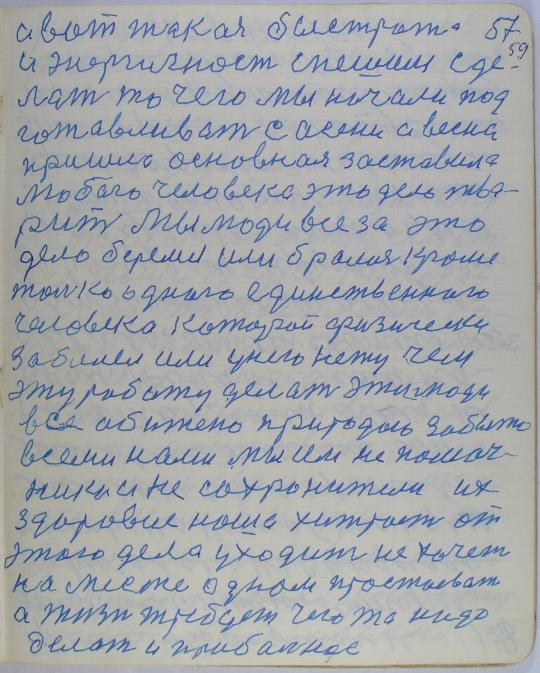 а вот такая быстрота 57
59
и энергичност спешим сде-
лат то чего мы начали под
готавливат с асени а весна
пришла основная заставила
любого человека это дело тва-
рит мы люди все за это
дело беремся или бралися кроме
толко одного единственного
человека которой физически
заболел или у него нету чем
эту работу делат эти люди
все абижено природою забыто
всеми нами мы им не помач-
ники и не сохранители их
здоровие наша хитраст от
этого дела уходит не хочет
на месте одном простоеват
а жизн требует чего та надо
делат и прибалное